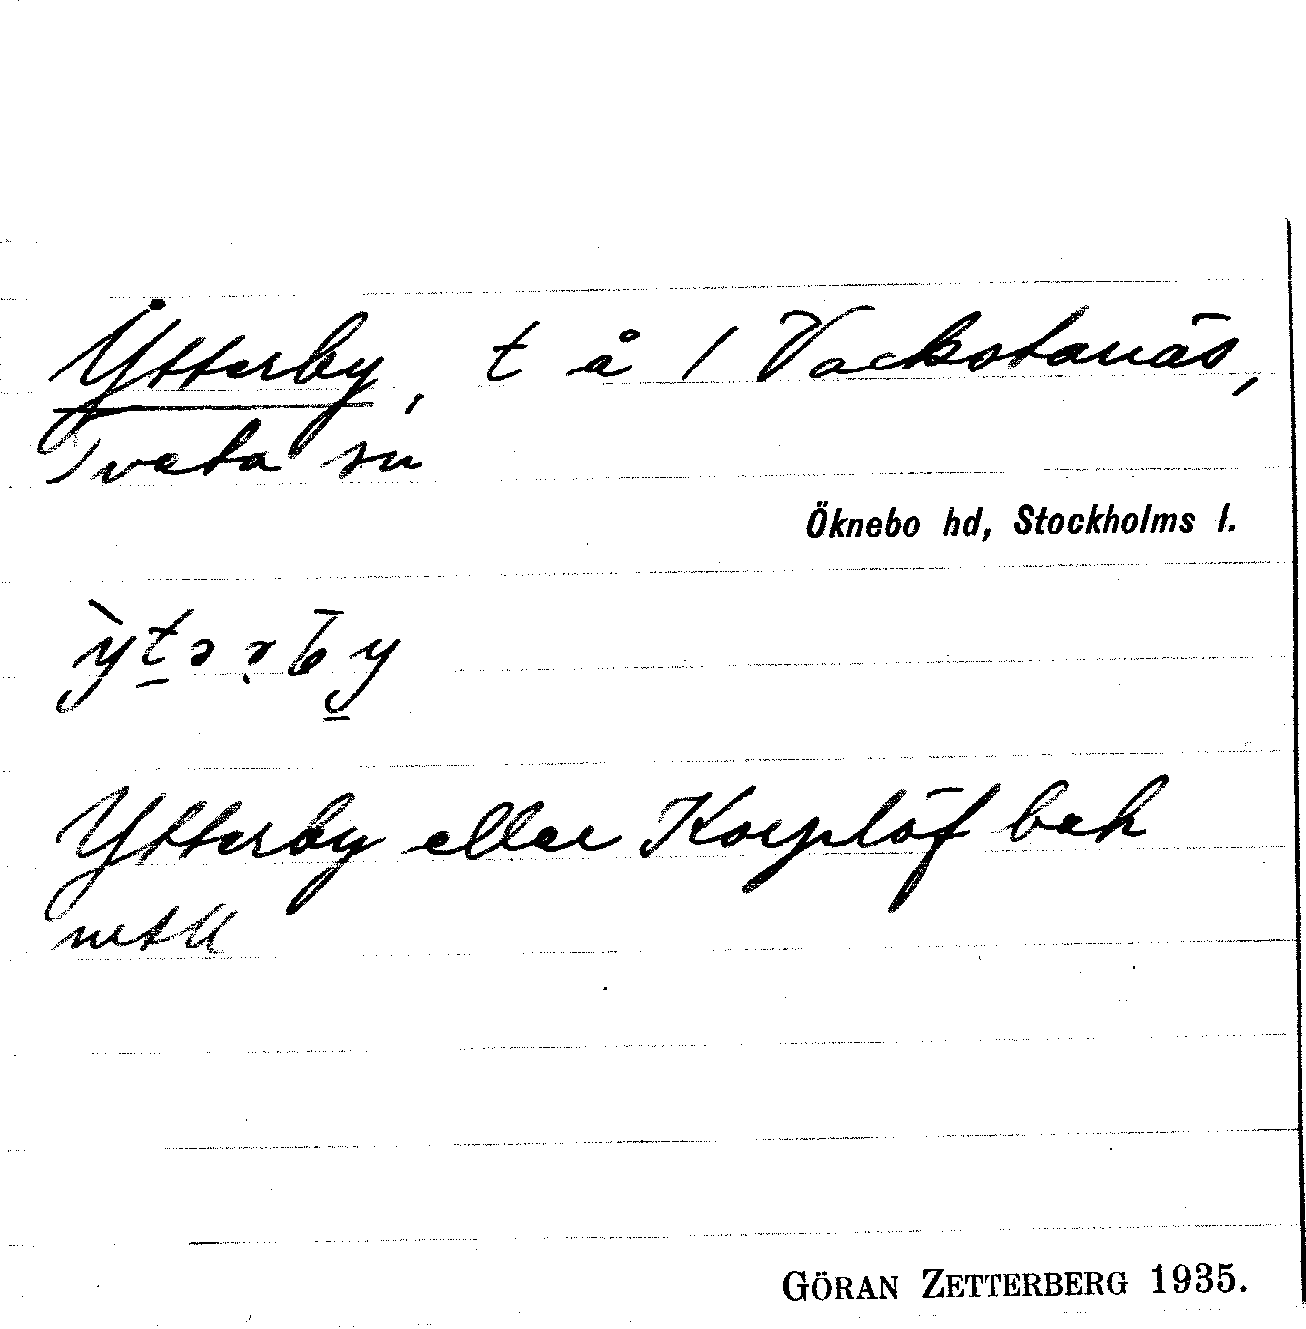 Ytterby, t å 1 Vackstanäs,
Tveta sn
Öknebo hd, Stockholms l.
ỳt̠ərby
Ytterby eller Korplöf bek
GÖRAN ZETTERBERG 1935.